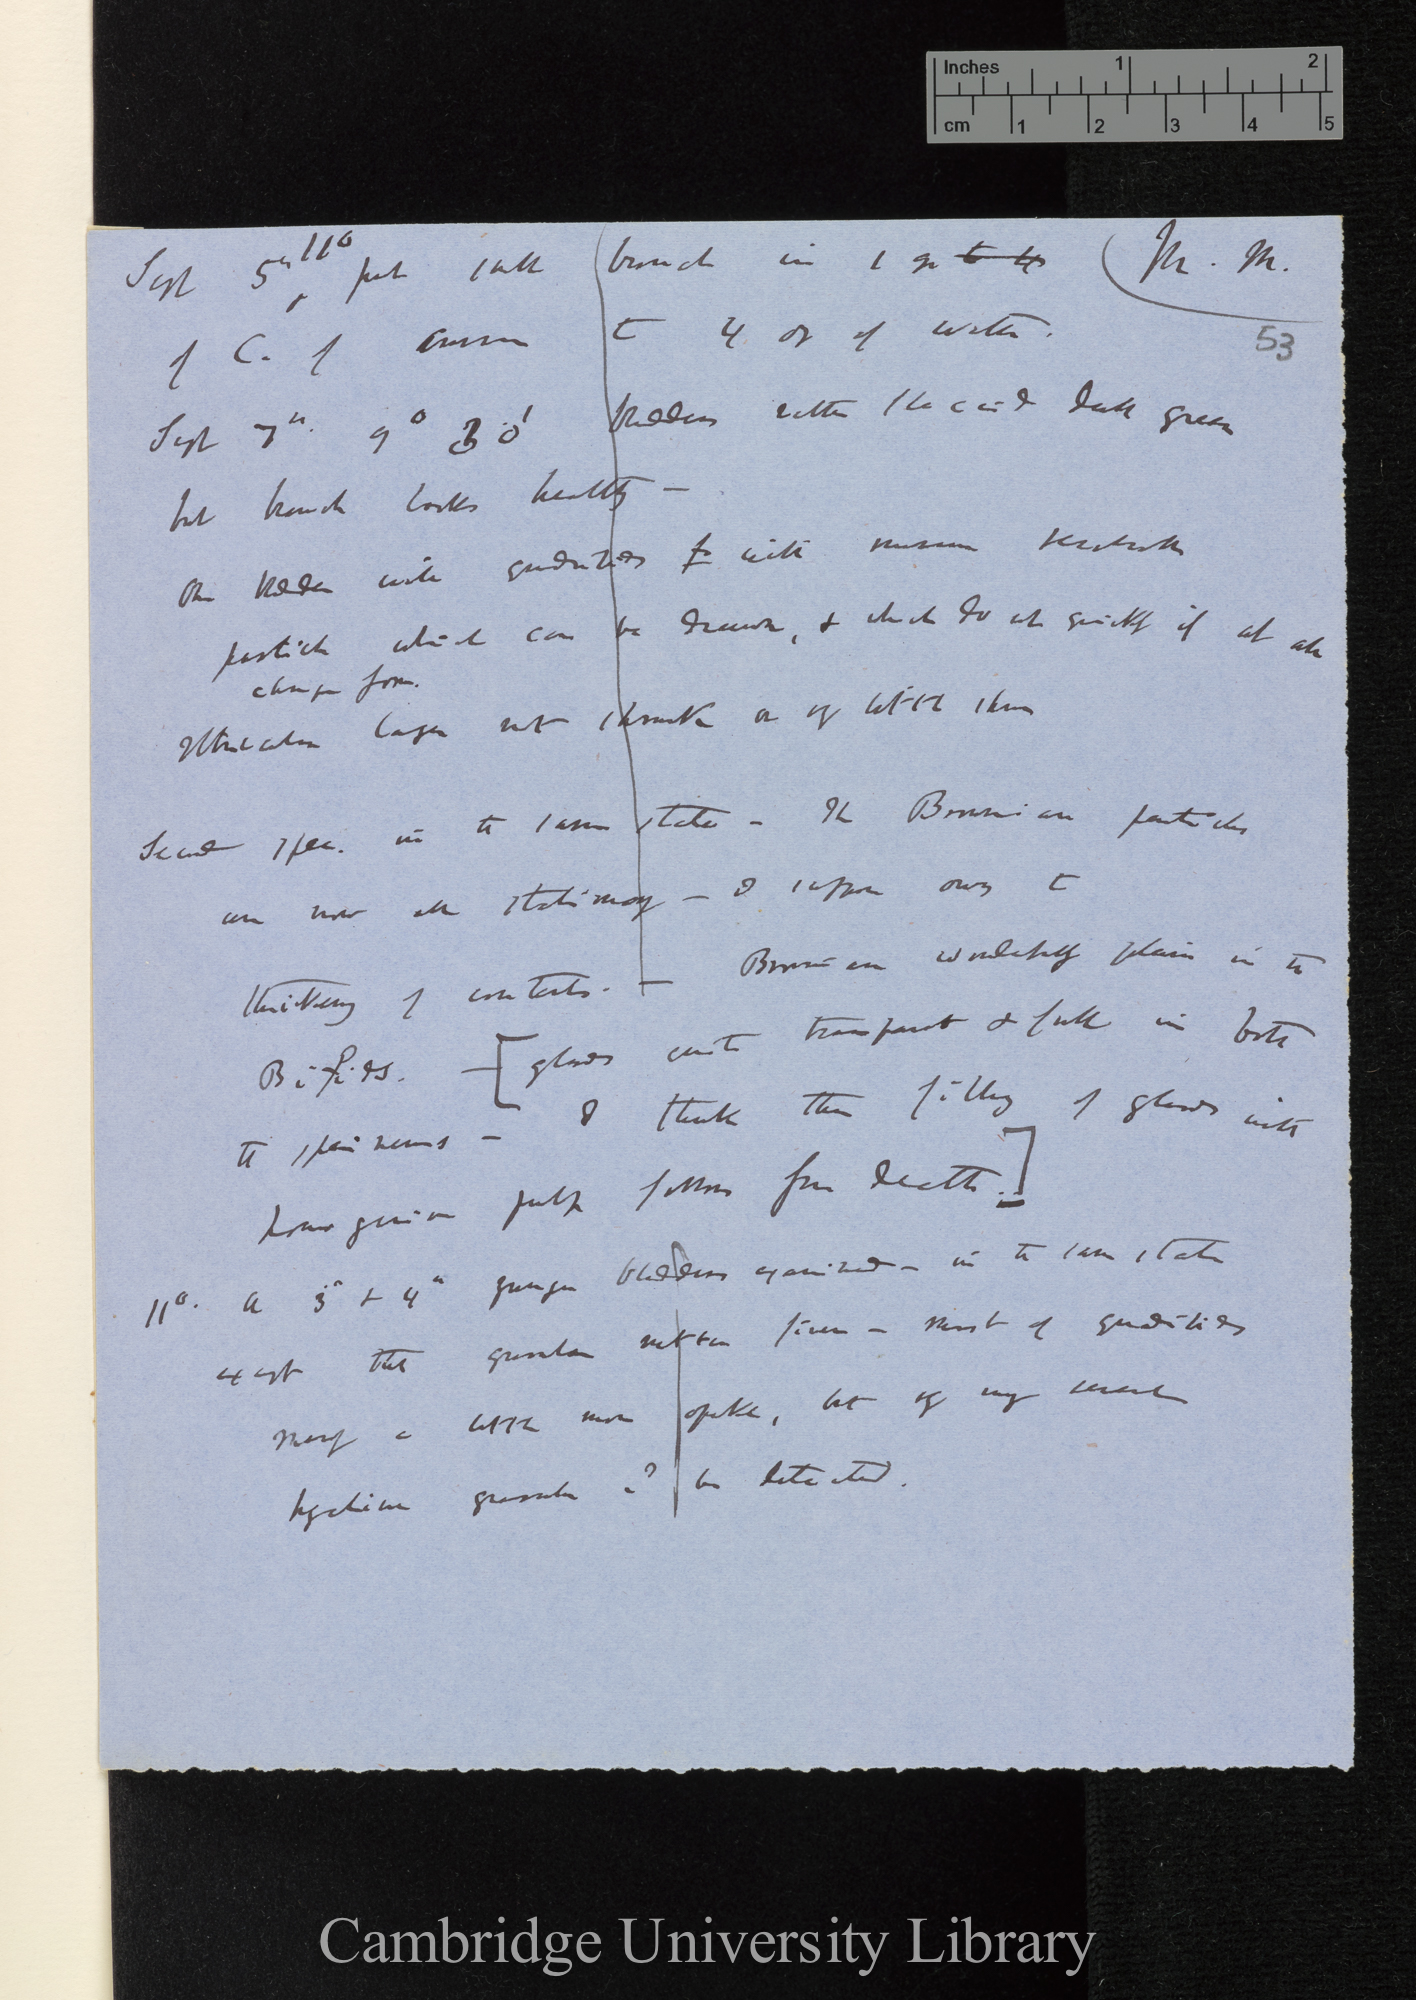 Inches 1 2
cm 1 2 3 4 5
Sept 5th 11° put small branch in 1 gr to 4 (M. M.
53
of C. of Ammon to 4 oz of water.
Sept 7th. 9° 30' bladders rather flaccid dark green
but branch looks healthy —
One bladder with quadrifids with numerous
particles which can be drawn, & which do not quickly if at all
change form.
Utricular layer not shrunk or very little so
Second spec. in the same state — The Brownian particles
are now all stationary — I suppose owing to
thickening of contents. — Brownian wonderfully plain in the
Bifids. — [glands quite transparent & full in both
the specimens — I think the filling of glands with
homogeneous pulp follows from death.]
11°. A 3d & 4th younger bladders examined — in the same state
except that granular matter finer — most of quadrifids
merely a little more opake, but by very careful
hyaline granular cd be detected.
Cambridge University Library